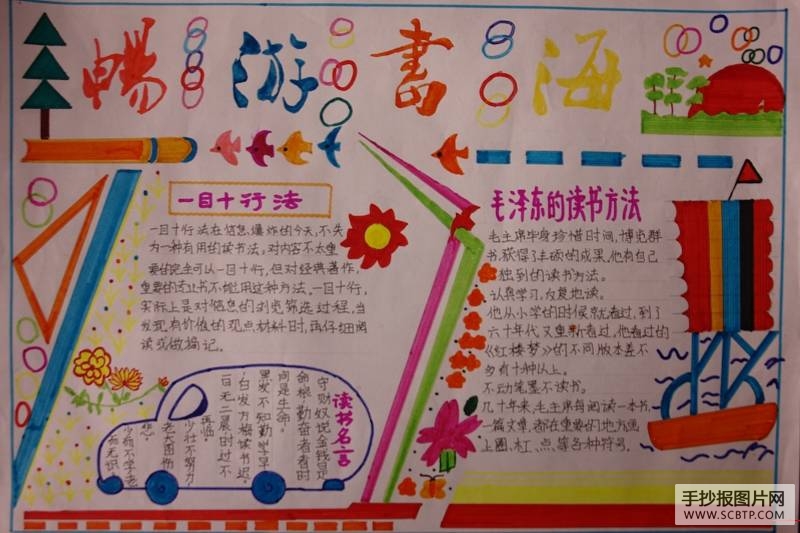 畅游书海
一目十行法
一目十行法在信息爆炸的今天,不失
为一种有用的读书法。对内容不太重
要的完全可以一目十行,但对经典著作,
重要的书不能用这种方法。一目十行,
实际上是对信息的浏览筛选过程,当
发现有价值的观点材料时,再仔细阅
读或做摘记。
毛泽东的读书方法
毛主席毕身珍惜时间,博览群
书,获得了丰硕的成果,他有自己
独到的读书方法。
认真学习,反复地读。
他从小学的时候就看过,到了
六十年代又重新看过,他看过的
《红楼梦》的不同版本差不
多有十种以上。
不动笔墨不读书。
几十年来,毛主席每阅读一本书,
一篇文章,都在重要的地方画
上圈、杠、点等各种符号。
读书名言
守财奴说金钱是
命根,勤奋者者时
间是生命。
黑发不知勤学早
,白发方悔读书迟。
一日无二晨,时过不
再临。
少壮不努力
老大徒伤
悲。
少而不学,老
而无识
手抄报图片网
WWW.SCBTP.COM